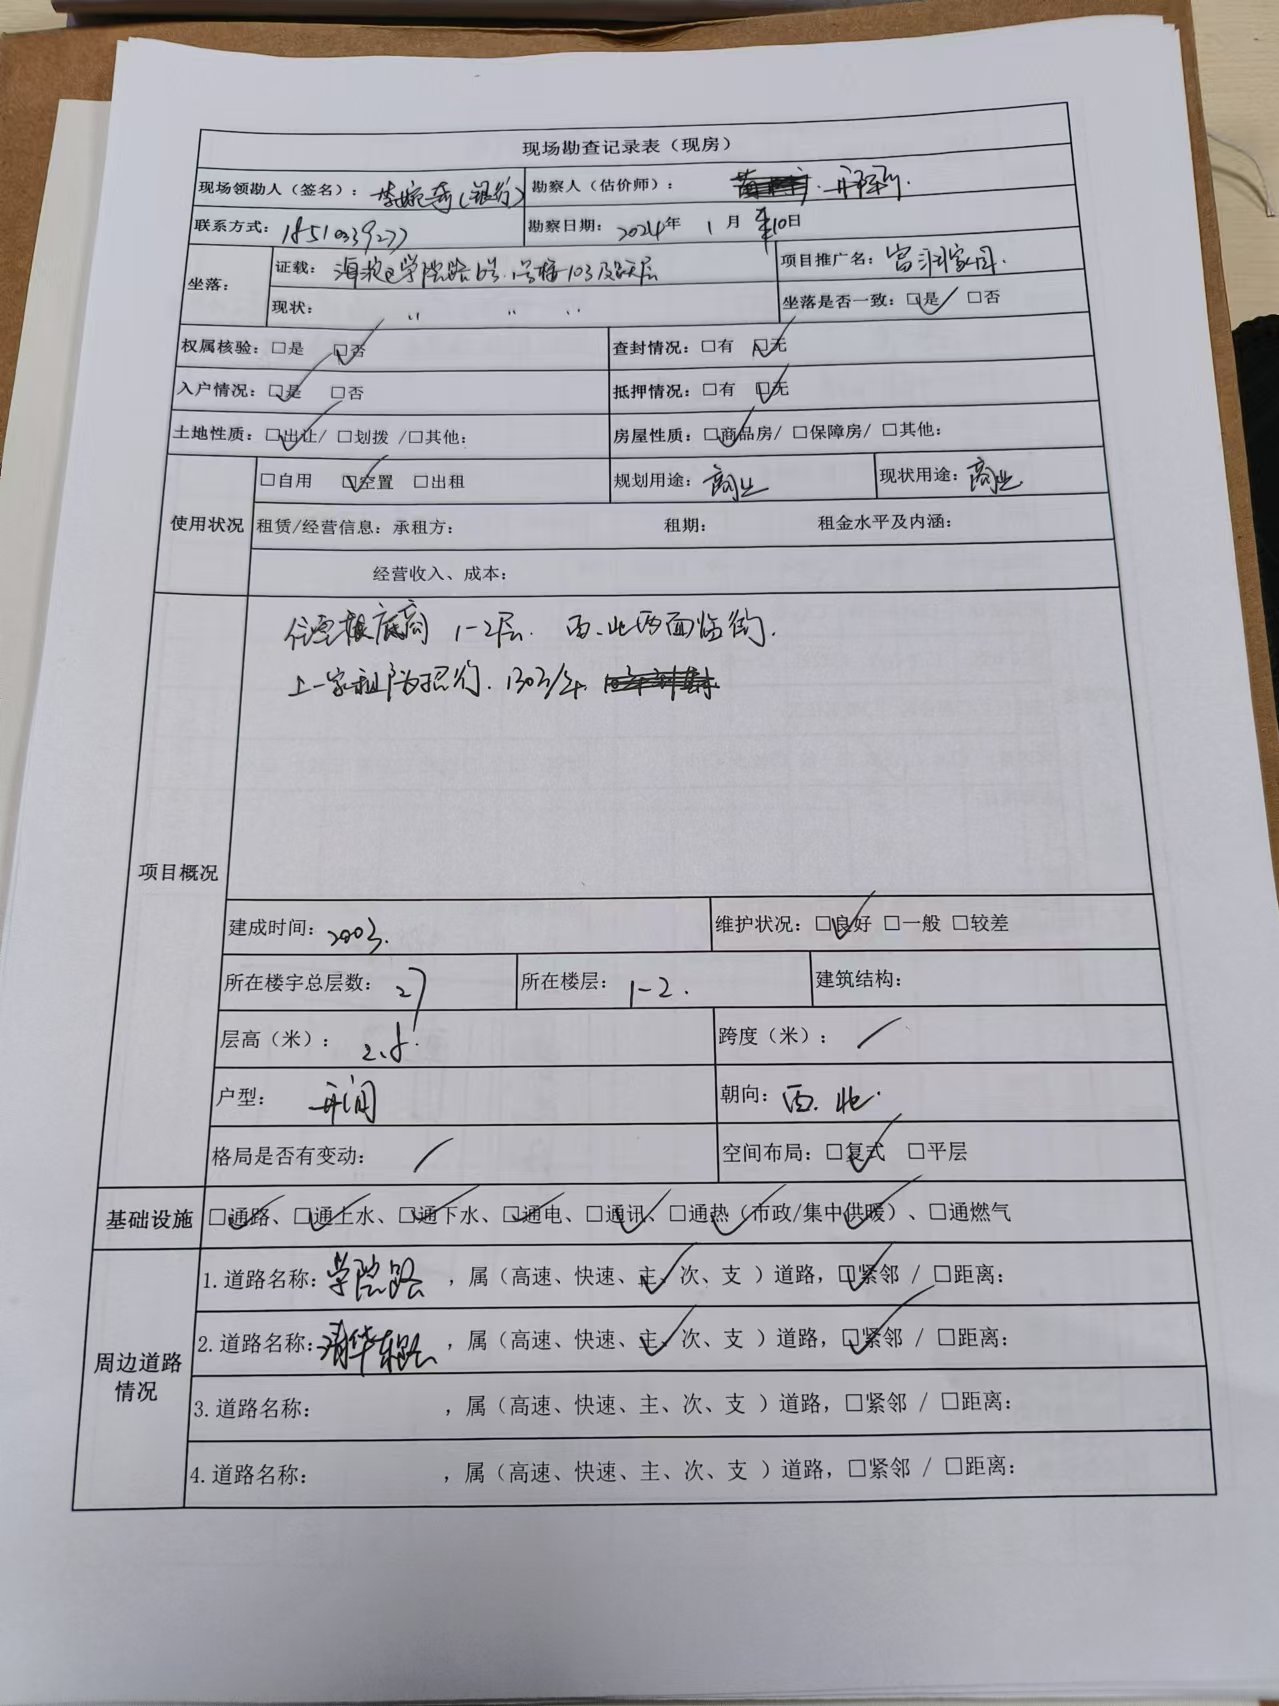 现场勘查记录表（现房）
现场领勘人（签名）：李婉奇（银行） 勘察人（估价师）：
联系方式：18510339277 勘察日期：2024年 1月 10日
坐落： 证载：海淀区学院路6号.1号楼103及跃层 项目推广名：富润家园.
现状： 〃 〃 〃 坐落是否一致：☑是 □否
权属核验：□是 ☑否 查封情况：□有 ☑无
入户情况：☑是 □否 抵押情况：□有 ☑无
土地性质：☑出让/ □划拨 /□其他： 房屋性质：☑商品房/ □保障房/ □其他：
使用状况 □自用 ☑空置 □出租 规划用途：商业 现状用途：商业
租赁/经营信息：承租方： 租期： 租金水平及内涵：
经营收入、成本：
项目概况
住宅楼底商 1-2层. 西.北两面临街.
上一家租户为招行. 130万/年.
建成时间：2003. 维护状况：☑良好 □一般 □较差
所在楼宇总层数：27 所在楼层：1-2. 建筑结构：
层高（米）：2.8. 跨度（米）：/
户型：开间 朝向：西.北.
格局是否有变动：/ 空间布局：☑复式 □平层
基础设施 ☑通路、☑通上水、☑通下水、☑通电、☑通讯、☑通热（市政/集中供暖）、□通燃气
周边道路情况
1.道路名称：学院路 ，属（高速、快速、主、次、支 ）道路，☑紧邻 / □距离：
2.道路名称：清华东路 ，属（高速、快速、主、次、支 ）道路，☑紧邻 / □距离：
3.道路名称： ，属（高速、快速、主、次、支 ）道路，□紧邻 / □距离：
4.道路名称： ，属（高速、快速、主、次、支 ）道路，□紧邻 / □距离：